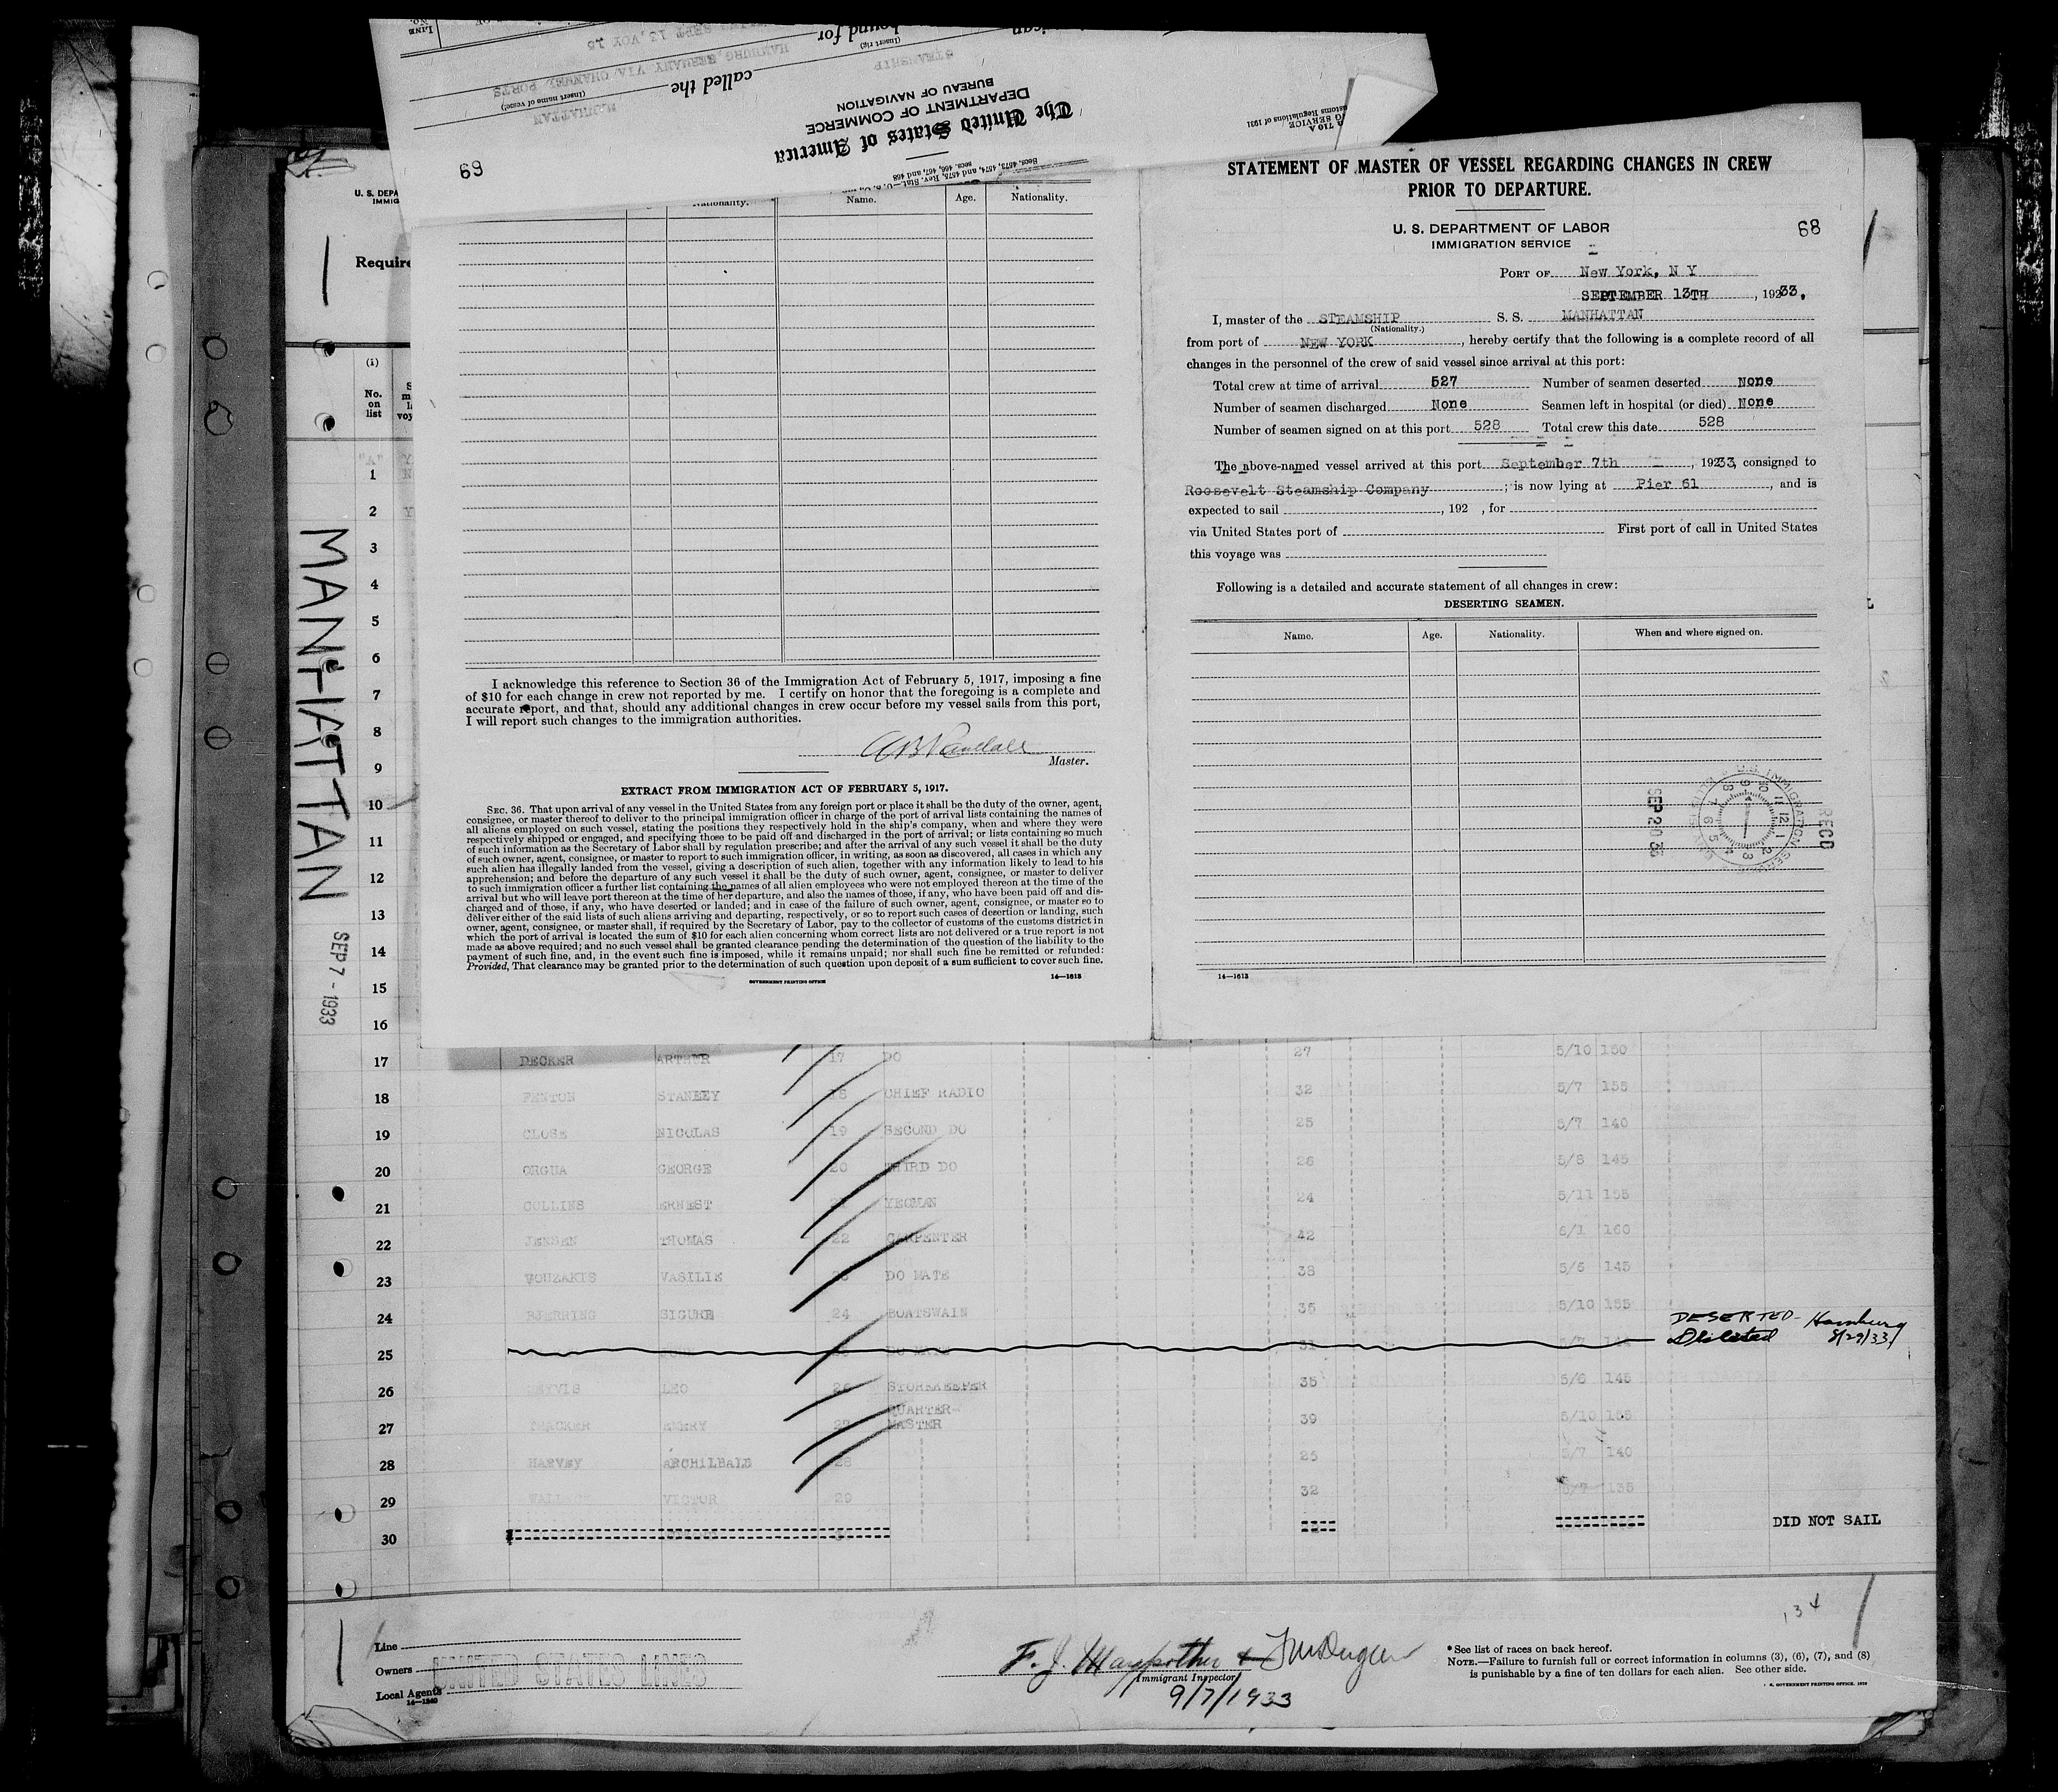 LINE No.
can
bound for
(Insert rig)
STEAMSHIP
HAMBURG, GERMANY VIA CHANNEL PORTS
SEPT 13, VOY 15
called the
(Insert name of vessel)
MANHATTAN
BUREAU OF NAVIGATION
DEPARTMENT OF COMMERCE
The United States of America
69
Customs Regulations of 1931
U. S. DEPA
IMMIG
Require
(1)
No. on list
Nationality. Name. Age. Nationality.
I acknowledge this reference to Section 36 of the Immigration Act of February 5, 1917, imposing a fine
of $10 for each change in crew not reported by me. I certify on honor that the foregoing is a complete and
accurate report, and that, should any additional changes in crew occur before my vessel sails from this port,
I will report such changes to the immigration authorities.
A B Randall
Master.
EXTRACT FROM IMMIGRATION ACT OF FEBRUARY 5, 1917.
SEC. 36. That upon arrival of any vessel in the United States from any foreign port or place it shall be the duty of the owner, agent,
consignee, or master thereof to deliver to the principal immigration officer in charge of the port of arrival lists containing the names of
all aliens employed on such vessel, stating the positions they respectively hold in the ship's company, when and where they were
respectively shipped or engaged, and specifying those to be paid off and discharged in the port of arrival; or lists containing so much
of such information as the Secretary of Labor shall by regulation prescribe; and after the arrival of any such vessel it shall be the duty
of such owner, agent, consignee, or master to report to such immigration officer, in writing, as soon as discovered, all cases in which any
such alien has illegally landed from the vessel, giving a description of such alien, together with any information likely to lead to his
apprehension; and before the departure of any such vessel it shall be the duty of such owner, agent, consignee, or master to deliver
to such immigration officer a further list containing the names of all alien employees who were not employed thereon at the time of the
arrival but who will leave port thereon at the time of her departure, and also the names of those, if any, who have been paid off and dis-
charged and of those, if any, who have deserted or landed; and in case of the failure of such owner, agent, consignee, or master so to
deliver either of the said lists of such aliens arriving and departing, respectively, or so to report such cases of desertion or landing, such
owner, agent, consignee, or master shall, if required by the Secretary of Labor, pay to the collector of customs of the customs district in
which the port of arrival is located the sum of $10 for each alien concerning whom correct lists are not delivered or a true report is not
made as above required; and no such vessel shall be granted clearance pending the determination of the question of the liability to the
payment of such fine, and, in the event such fine is imposed, while it remains unpaid; nor shall such fine be remitted or refunded:
Provided, That clearance may be granted prior to the determination of such question upon deposit of a sum sufficient to cover such fine.
GOVERNMENT PRINTING OFFICE 14—1613
STATEMENT OF MASTER OF VESSEL REGARDING CHANGES IN CREW
PRIOR TO DEPARTURE.
U. S. DEPARTMENT OF LABOR
IMMIGRATION SERVICE
68
PORT OF New York, N Y
SEPTEMBER 13TH, 1923 33.
I, master of the STEAMSHIP S. S. MANHATTAN
(Nationality.)
from port of NEW YORK, hereby certify that the following is a complete record of all
changes in the personnel of the crew of said vessel since arrival at this port:
Total crew at time of arrival 527 Number of seamen deserted None
Number of seamen discharged None Seamen left in hospital (or died) None
Number of seamen signed on at this port 528 Total crew this date 528
The above-named vessel arrived at this port September 7th, 19233, consigned to
Roosevelt Steamship Company; is now lying at Pier 61, and is
expected to sail , 192 , for
via United States port of First port of call in United States
this voyage was
Following is a detailed and accurate statement of all changes in crew:
DESERTING SEAMEN.
Name. Age. Nationality. When and where signed on.
SEP 20 33
REC'D
14—1613
MANHATTAN
SEP 7 - 1933
1
2
3
4
5
6
7
8
9
10
11
12
13
14
15
16
17 DECKER ARTHUR 17 DO 27 5/10 150
18 FENTON STANLEY 18 CHIEF RADIO 32 5/7 155
19 CLOSE NICOLAS 19 SECOND DO 25 5/7 140
20 ORGUA GEORGE 20 THIRD DO 26 5/8 145
21 COLLINS ERNEST YEOMAN 24 5/11 155
22 JENSEN THOMAS 22 CARPENTER 42 6/1 160
23 VOUZAKIS VASILIE DO MATE 38 5/6 145
24 BJERRING SIGURD 24 BOATSWAIN 36 5/10 155
25 31 DESERTED - Hamburg 8/29/33
26 LEO 26 STOREKEEPER 35 5/6 145
27 THACKER EMERY 27 QUARTER-MASTER 39 5/10 155
28 HARVEY ARCHILBALD 28 25 5/7 140
29 WALLACE VICTOR 29 32 5/7 135
30 DID NOT SAIL
134
Line
Owners
Local Agents
UNITED STATES LINES
14—1240
Immigrant Inspector
9/7/1933
*See list of races on back hereof.
NOTE.—Failure to furnish full or correct information in columns (3), (6), (7), and (8)
is punishable by a fine of ten dollars for each alien. See other side.